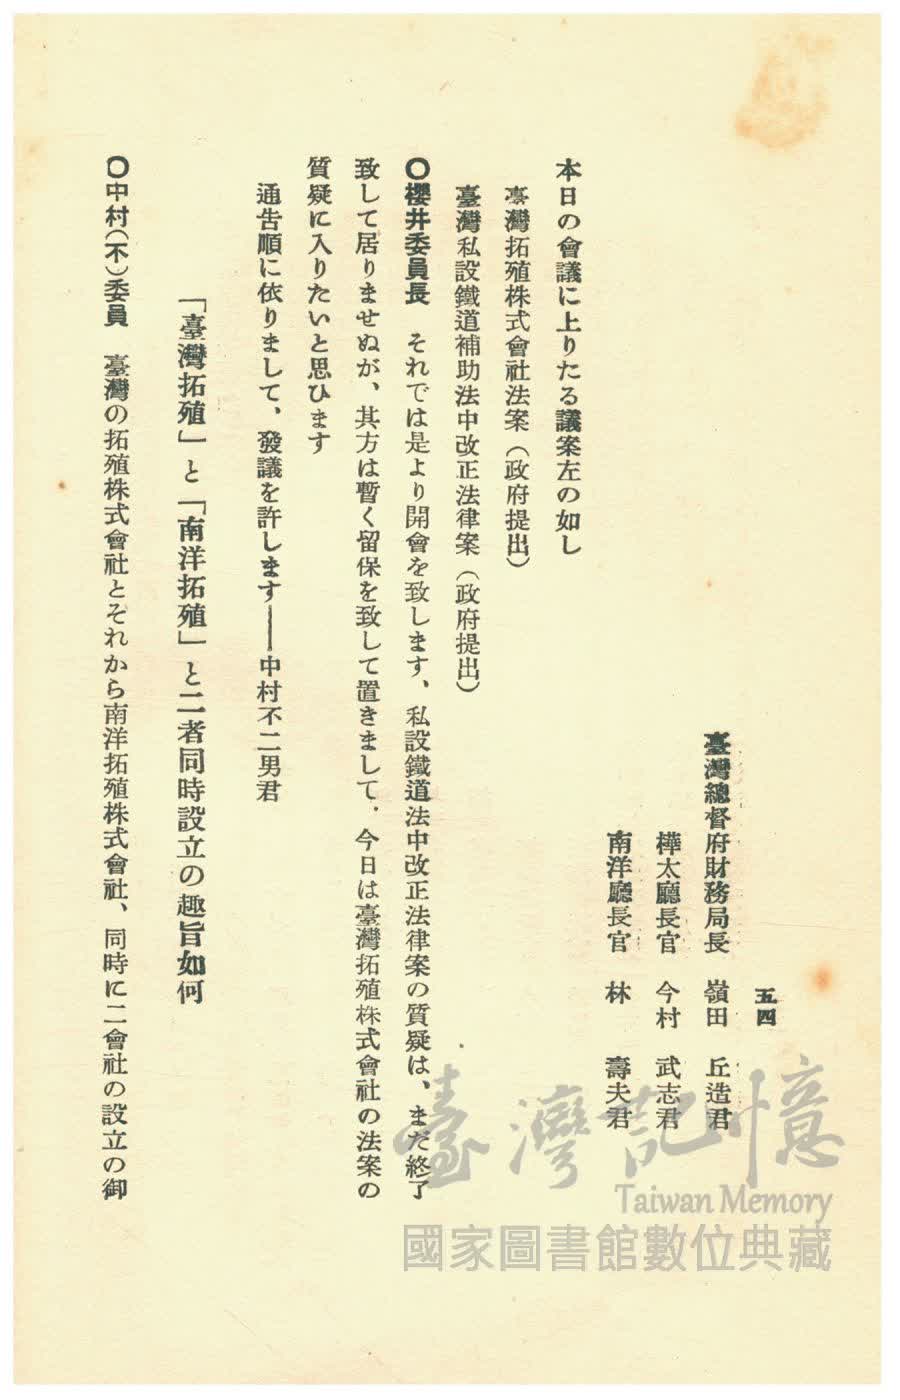 五四
臺灣總督府財務局長　嶺田　丘造君
樺太廳長官　今村　武志君
南洋廳長官　林　壽夫君
本日の會議に上りたる議案左の如し
臺灣拓殖株式會社法案（政府提出）
臺灣私設鐵道補助法中改正法律案（政府提出）
〇櫻井委員長　それでは是より開會を致します、私設鐵道法中改正法律案の質疑は、まだ終了
致して居りませぬが、其方は暫く留保を致して置きまして、今日は臺灣拓殖株式會社の法案の
質疑に入りたいと思ひます
通告順に依りまして、發議を許します――中村不二男君
「臺灣拓殖」と「南洋拓殖」と二者同時設立の趣旨如何
〇中村（不）委員　臺灣の拓殖株式會社とそれから南洋拓殖株式會社、同時に二會社の設立の御
臺灣記憶
Taiwan Memory
國家圖書館數位典藏